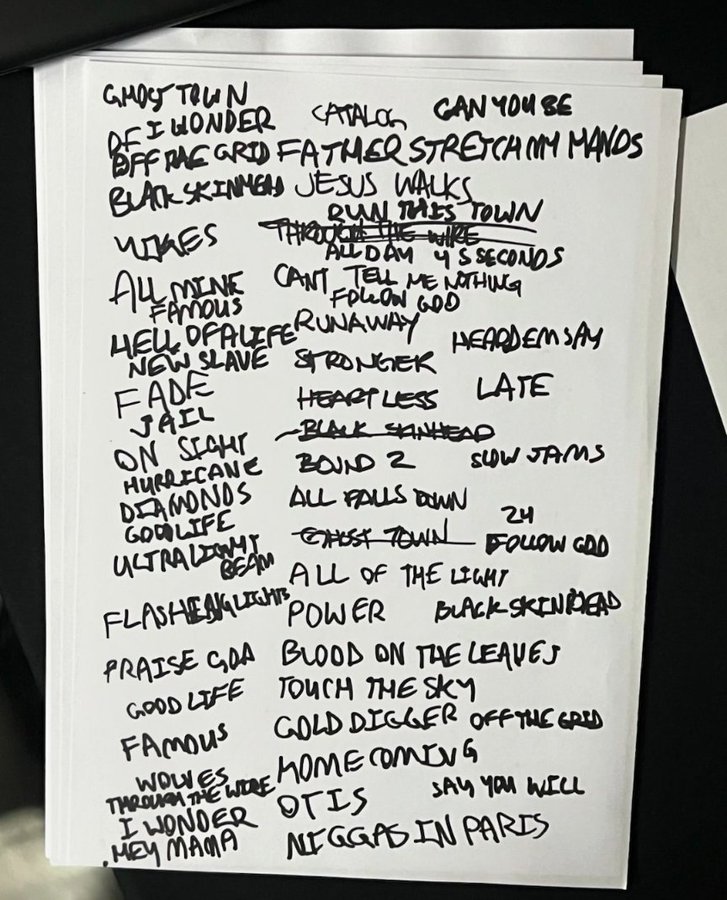 GHOST TOWN
OF I WONDER
OFF THE GRID
BLACK SKINHEAD
YIKES
ALL MINE
FAMOUS
HELL OF A LIFE
NEW SLAVE
FADE
JAIL
ON SIGHT
HURRICANE
DIAMONDS
GOOD LIFE
ULTRALIGHT
BEAM
FLASHING LIGHTS
PRAISE GOD
GOOD LIFE
FAMOUS
WOLVES
THROUGH THE WIRE
I WONDER
HEY MAMA
CATALOG
FATHER STRETCH MY HANDS
JESUS WALKS
RUN THIS TOWN
THROUGH THE WIRE
ALL DAY 4 5 SECONDS
CANT TELL ME NOTHING
FOLLOW GOD
RUNAWAY
STRONGER
HEARTLESS
BLACK SKINHEAD
BOUND 2
ALL FALLS DOWN
GHOST TOWN
ALL OF THE LIGHT
POWER
BLOOD ON THE LEAVES
TOUCH THE SKY
GOLD DIGGER
HOMECOMING
OTIS
NIGGAS IN PARIS
CAN YOU BE
HEARD EM SAY
LATE
SLOW JAMS
24
FOLLOW GOD
BLACK SKINHEAD
OFF THE GRID
SAY YOU WILL